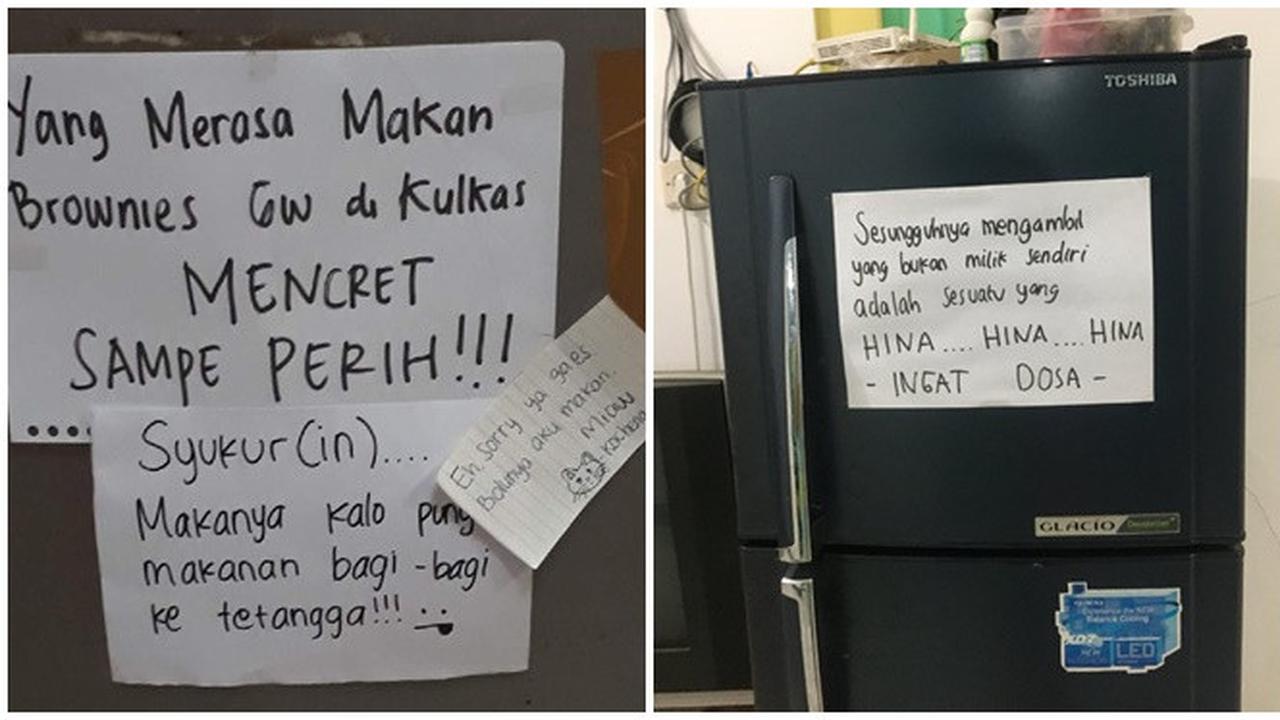 Yang Merasa Makan
Brownies Gw di Kulkas
MENCRET
SAMPE PERIH!!!
Syukur(in)....
Makanya kalo puny
makanan bagi-bagi
ke tetangga!!!
Eh, sorry ya gaes
aku makan.
Miaw
TOSHIBA
Sesungguhnya mengambil
yang bukan milik sendiri
adalah sesuatu yang
HINA.... HINA.... HINA
- INGAT DOSA -
GLACIO
Experience the NEW
Balance Cooling
NEW
LED